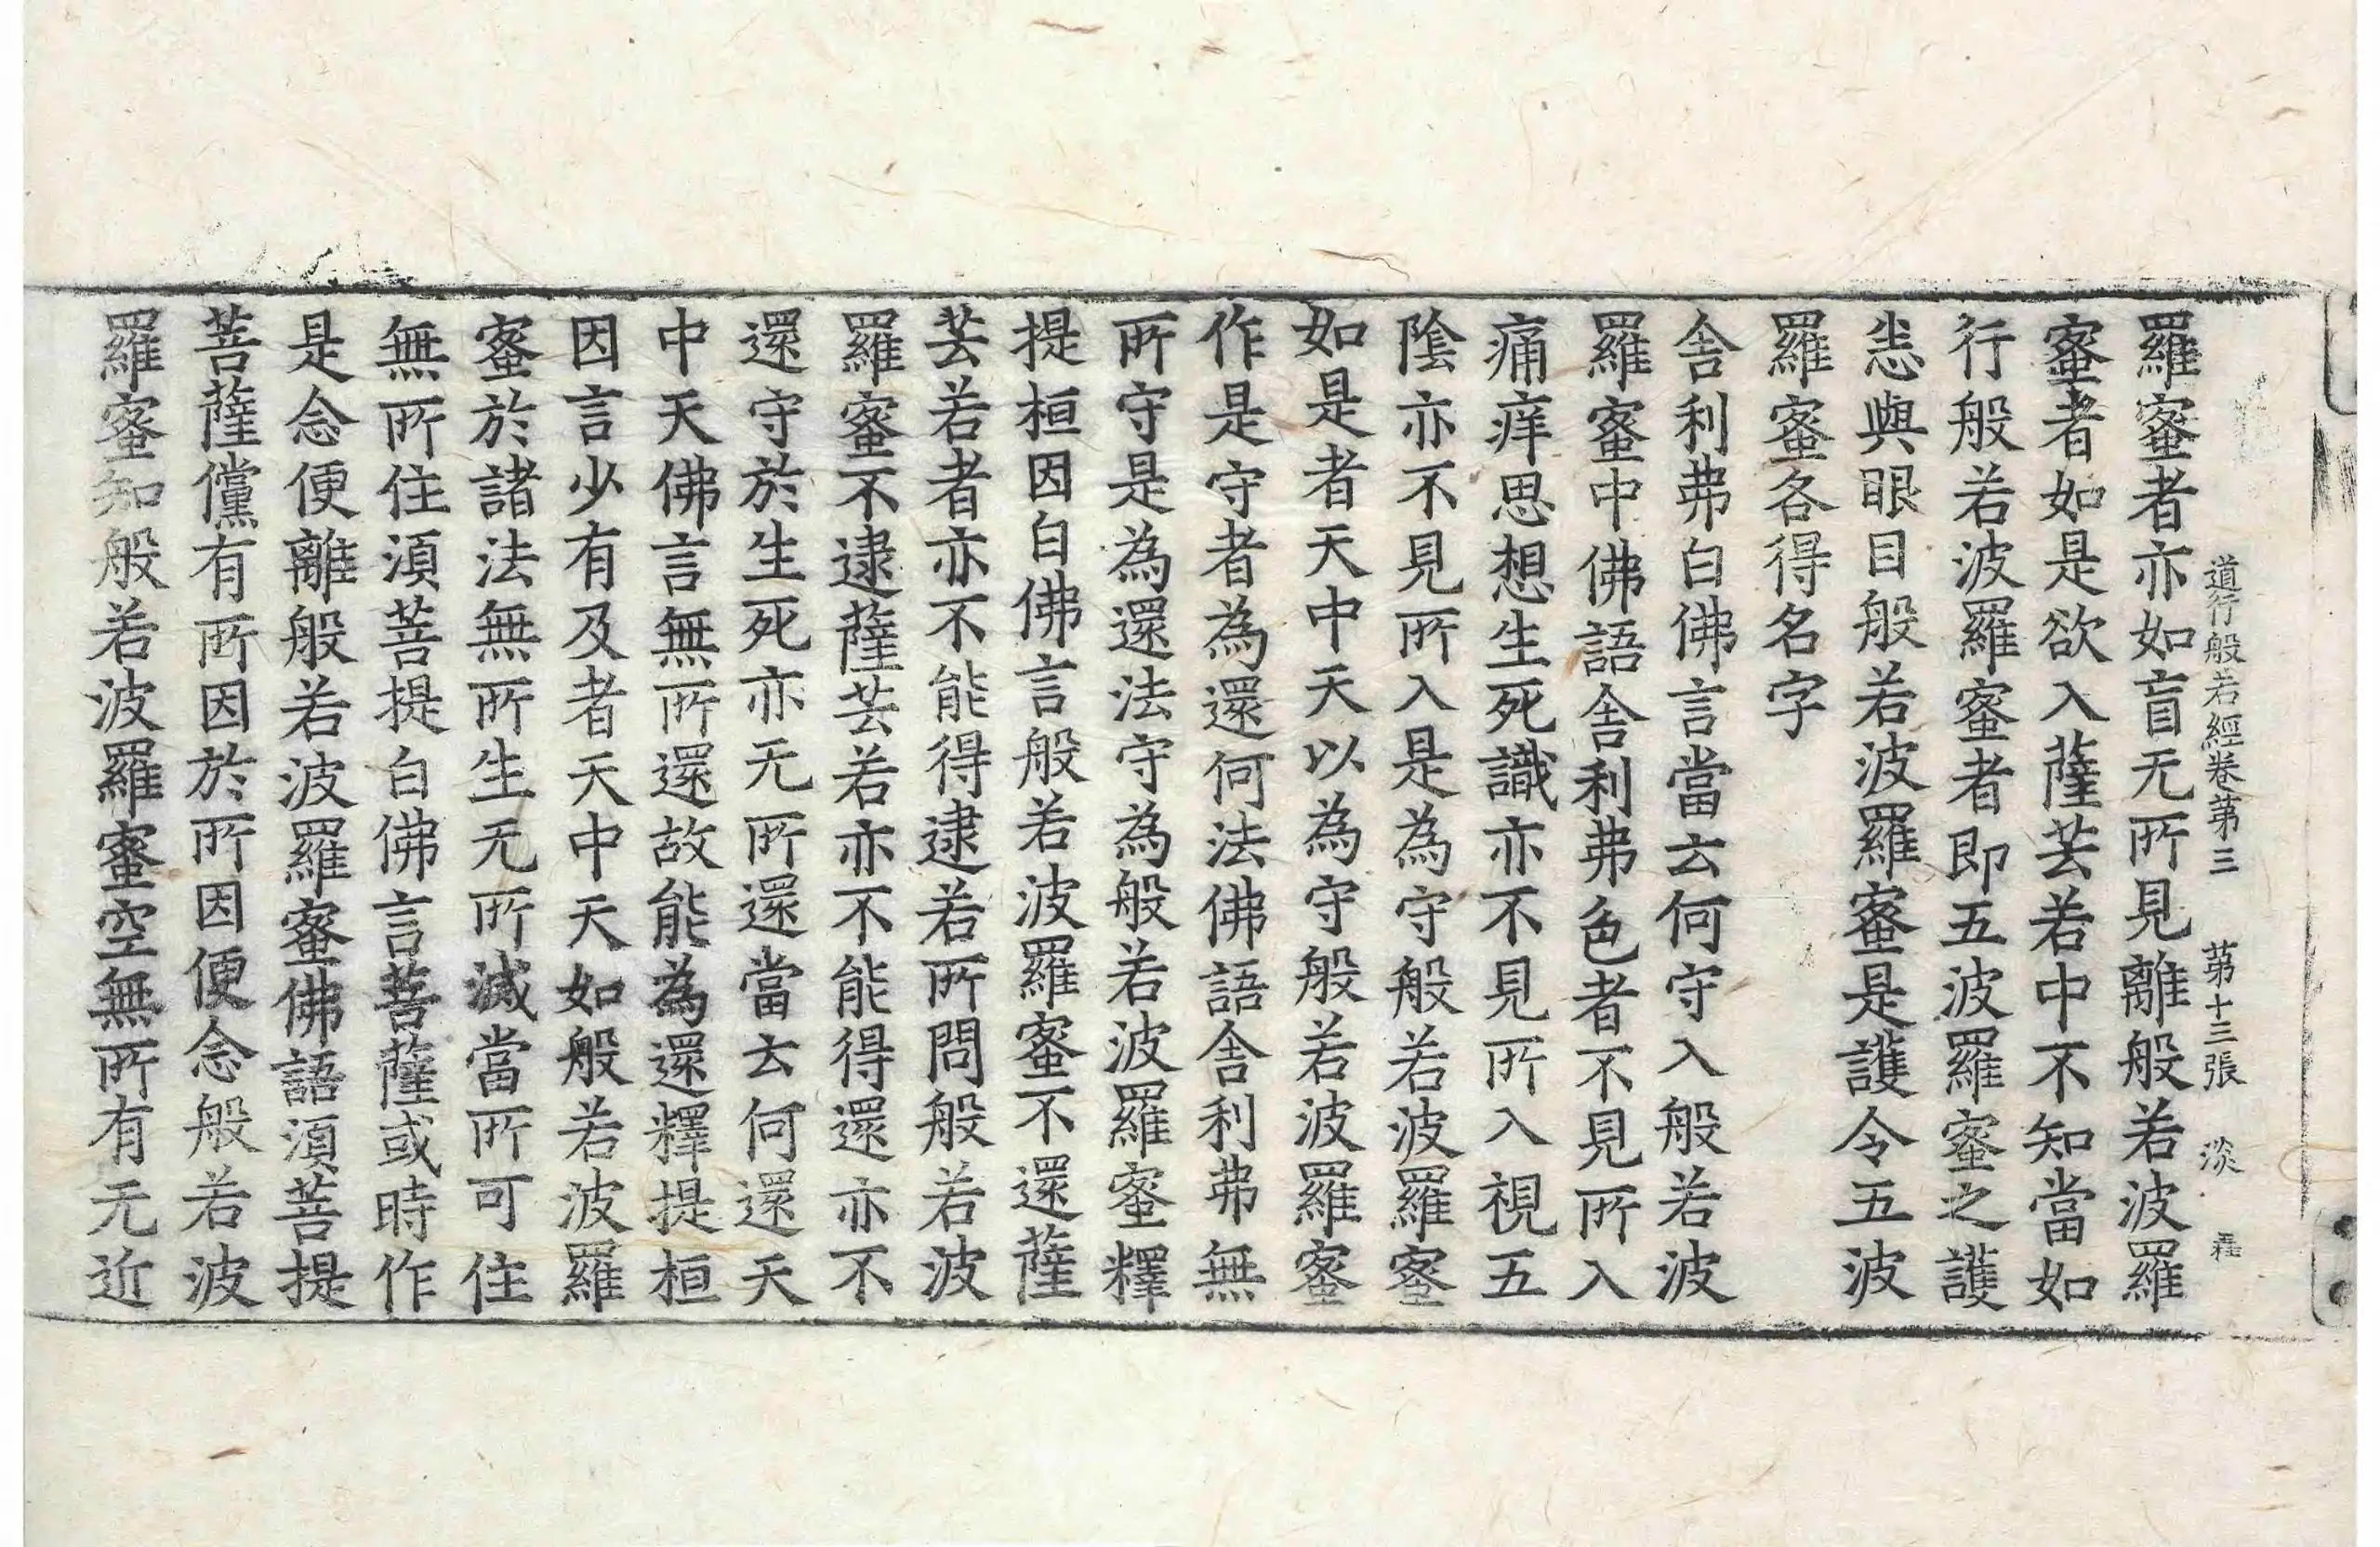 道行般若經卷苐三 苐十三張 淡
羅蜜者亦如盲无所見離般若波羅
蜜者如是欲入薩芸若中不知當如
行般若波羅蜜者即五波羅蜜之護
悉與眼目般若波羅蜜是護令五波
羅蜜各得名字
舍利弗白佛言當云何守入般若波
羅蜜中佛語舍利弗色者不見所入
痛痒思想生死識亦不見所入視五
陰亦不見所入是為守般若波羅蜜
如是者天中天以為守般若波羅蜜
作是守者為還何法佛語舍利弗無
所守是為還法守為般若波羅蜜釋
提桓因白佛言般若波羅蜜不還薩
芸若者亦不能得逮若所問般若波
羅蜜不逮薩芸若亦不能得還亦不
還守於生死亦无所還當云何還天
中天佛言無所還故能為還釋提桓
因言少有及者天中天如般若波羅
蜜於諸法無所生无所滅當所可住
無所住湏菩提白佛言菩薩或時作
是念便離般若波羅蜜佛語湏菩提
菩薩儻有所因於所因便念般若波
羅蜜知般若波羅蜜空無所有无近